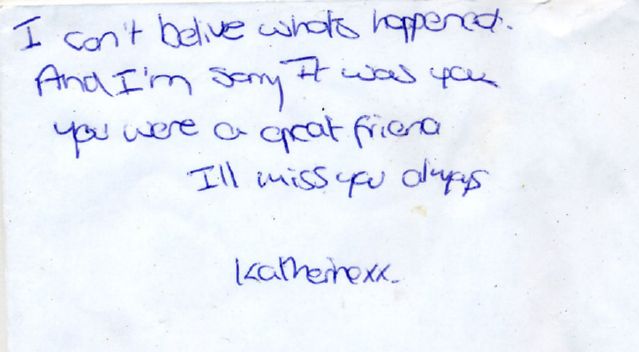 I can't belive whats happened.
And I'm sorry It was you
you were a great friend
I'll miss you always
Katherine xx.